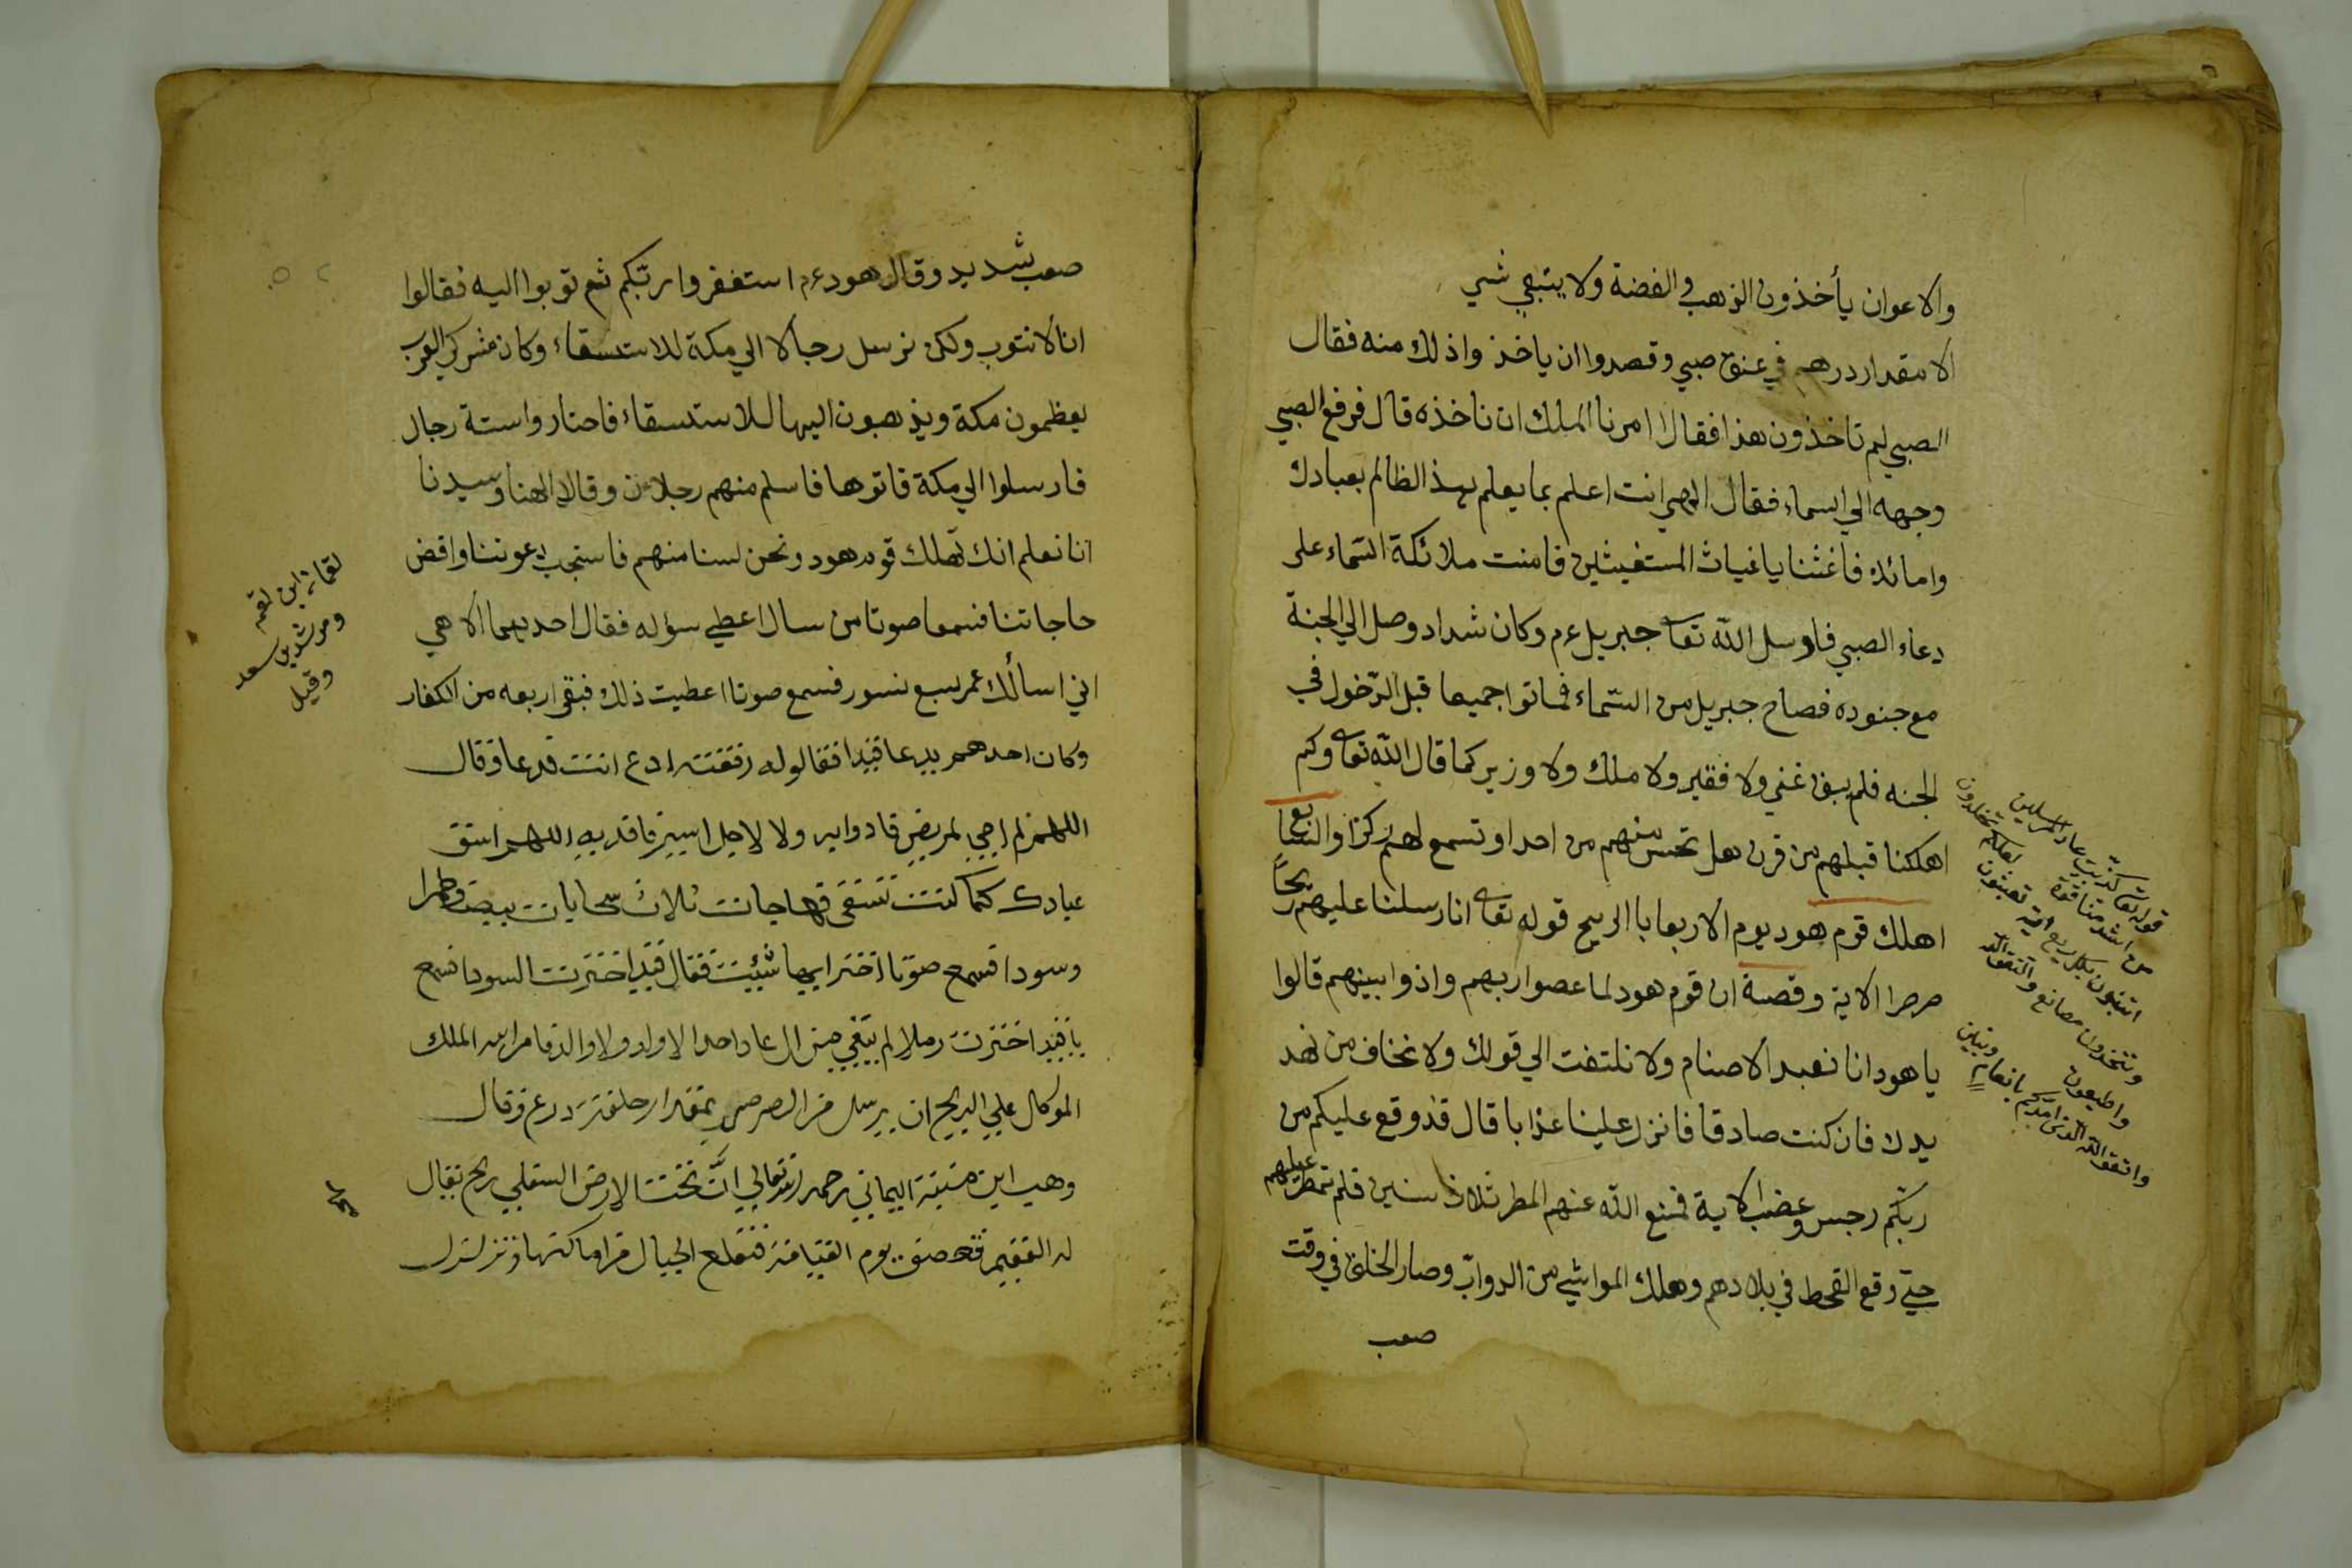 والاعوان يأخذون الذهب والفضة ولا يتبقي شي
الا مقدار درهم في عنق صبي وقصدوا ان ياخذ واذلك منه فقال
الصبي لم تاخذون هذا فقالا امرنا الملك ان ناخذه قال فرفع الصبي
وجهه الي السماء فقال الهي انت اعلم بما يعلم بهذ الظالم بعبادك
وامائك فاغثنا يا غياث المستغيثين فامنت ملائكة السماء على
دعاء الصبي فاوسل الله تعا جبريل عم وكان شداد وصل الي الجنة
مع جنوده فصاح جبريل من السماء فماتوا جميعا قبل الدخول في
الجنه فلم يبق غني ولا فقير ولا ملك ولا وزير كما قال الله تعا وكم
اهلكنا قبلهم من قرن هل تحس منهم من احد او تسمع لهم ركزا والسابع
اهلك قوم هود يوم الاربعا با الريح قوله تعا انا رسلنا عليهم ريحا
صرصرا الاية وقصة ان قوم هود لما عصوا ربهم واذوا بينهم قالوا
يا هود انا نعبد الاصنام ولا نلتفت الي قولك ولا نخاف من نهد
يدك فان كنت صادقا فانزل علينا عذابا قال قد وقع عليكم من
ربكم رجس وغضب الاية فمنع الله عنهم المطر ثلاث سنين فلم تمطر عليهم
حتي وقع القحط في بلادهم وهلك المواشي من الدواب وصار الخلق في وقت
صعب
قوله تعا كذبت عاد المرسلين
من اشد منا قوة لعلكم تخلدون
اتبنون بكل ريع اية تعبثون
وتتخذون مصانع واتقوا الله
واطيعون
واتقوا الله الذي امدكم بانعام وبنين
صعب شديد وقال هود عم استغفروا ربكم ثم توبوا اليه فقالوا
انا لا نتوب ولكن نرسل رجالا الي مكة للاستسقاء وكان مشركي العرب
يعظمون مكة ويذهبون اليها للاستسقاء فاحتار واستة رجال
فارسلوا الي مكة فاتوها فاسلم منهم رجلان وقالا الهنا وسيدنا
انا نعلم انك تهلك قوم هود ونحن لسنا منهم فاستجب دعوتنا واقض
حاجاتنا فسمعا صوتا من سال اعطي سؤله فقال احديهما الاهي
اني اسألك عمر سبع نسور فسمع صوتا اعطيت ذلك فبقي اربعه من الكفار
وكان احدهم يدعا قيدا فقالوا له رفقته ادع انت فدعا وقال
اللهم لم اجي لمريض فادوايه ولا لاجل اسير فافديه اللهم اسق
عبادك كما كنت تسقي فهاجات ثلاث سحابات بيضا وحمرا
وسودا فسمع صوتا اختر ايها شئيت فقال قيد اخترت السودا فسمع
يا قيد اخترت رملا لم يبقي من ال عاد احدا الا ولد ولا والد فامر الله الملك
الموكال علي الريح ان يرسل من الصرصر بمقدار حلقة درع وقال
وهب ابن منبه اليماني رحمه الله تعالي ان تحت الارض السفلي ريح يقال
له العقيم فعصف يوم القيامة فتقلع الجبال من اماكنها وتزلزل
لقمان ابن لقمه
ومرشد بن سعد
وقيل